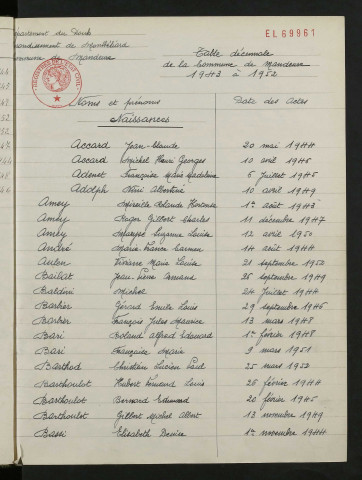 EL 69961
Département du Doubs
Arrondissement de Montbéliard
Commune de Mandeure
Table décennale
de la Commune de Mandeure
1943 à 1952
Noms et prénoms
Date des Actes
Naissances
Accard Jean-Claude 20 mai 1944
Accard Michel Henri Georges 10 avril 1946
Adenet Françoise Marie Madeleine 6 juillet 1945
Adolph 10 avril 1949
Amey Mireille Yolande 1er août 1943
Amey Roger Gilbert Charles 11 décembre 1947
Amey Suzanne Louise 12 avril 1950
André Marie France Carmen 14 août 1944
Viviane Marie Louise 21 septembre 1950
Jean Pierre Armand 26 septembre 1949
Baldini Michel 24 juillet 1944
Barbier Gérard Emile Louis 29 septembre 1946
Barbier François Jules Maurice 13 mars 1948
Bari Roland Alfred Edouard 1er février 1948
Bari Françoise Marie 9 mars 1951
Barthod Christian Lucien Paul 25 mars 1952
Barthoulot Hubert Fernand Louis 26 février 1944
Barthoulot Bernard Edmond 20 février 1945
Barthoulot Gilbert Michel Albert 13 novembre 1949
Bassi Elisabeth Denise 1er novembre 1944